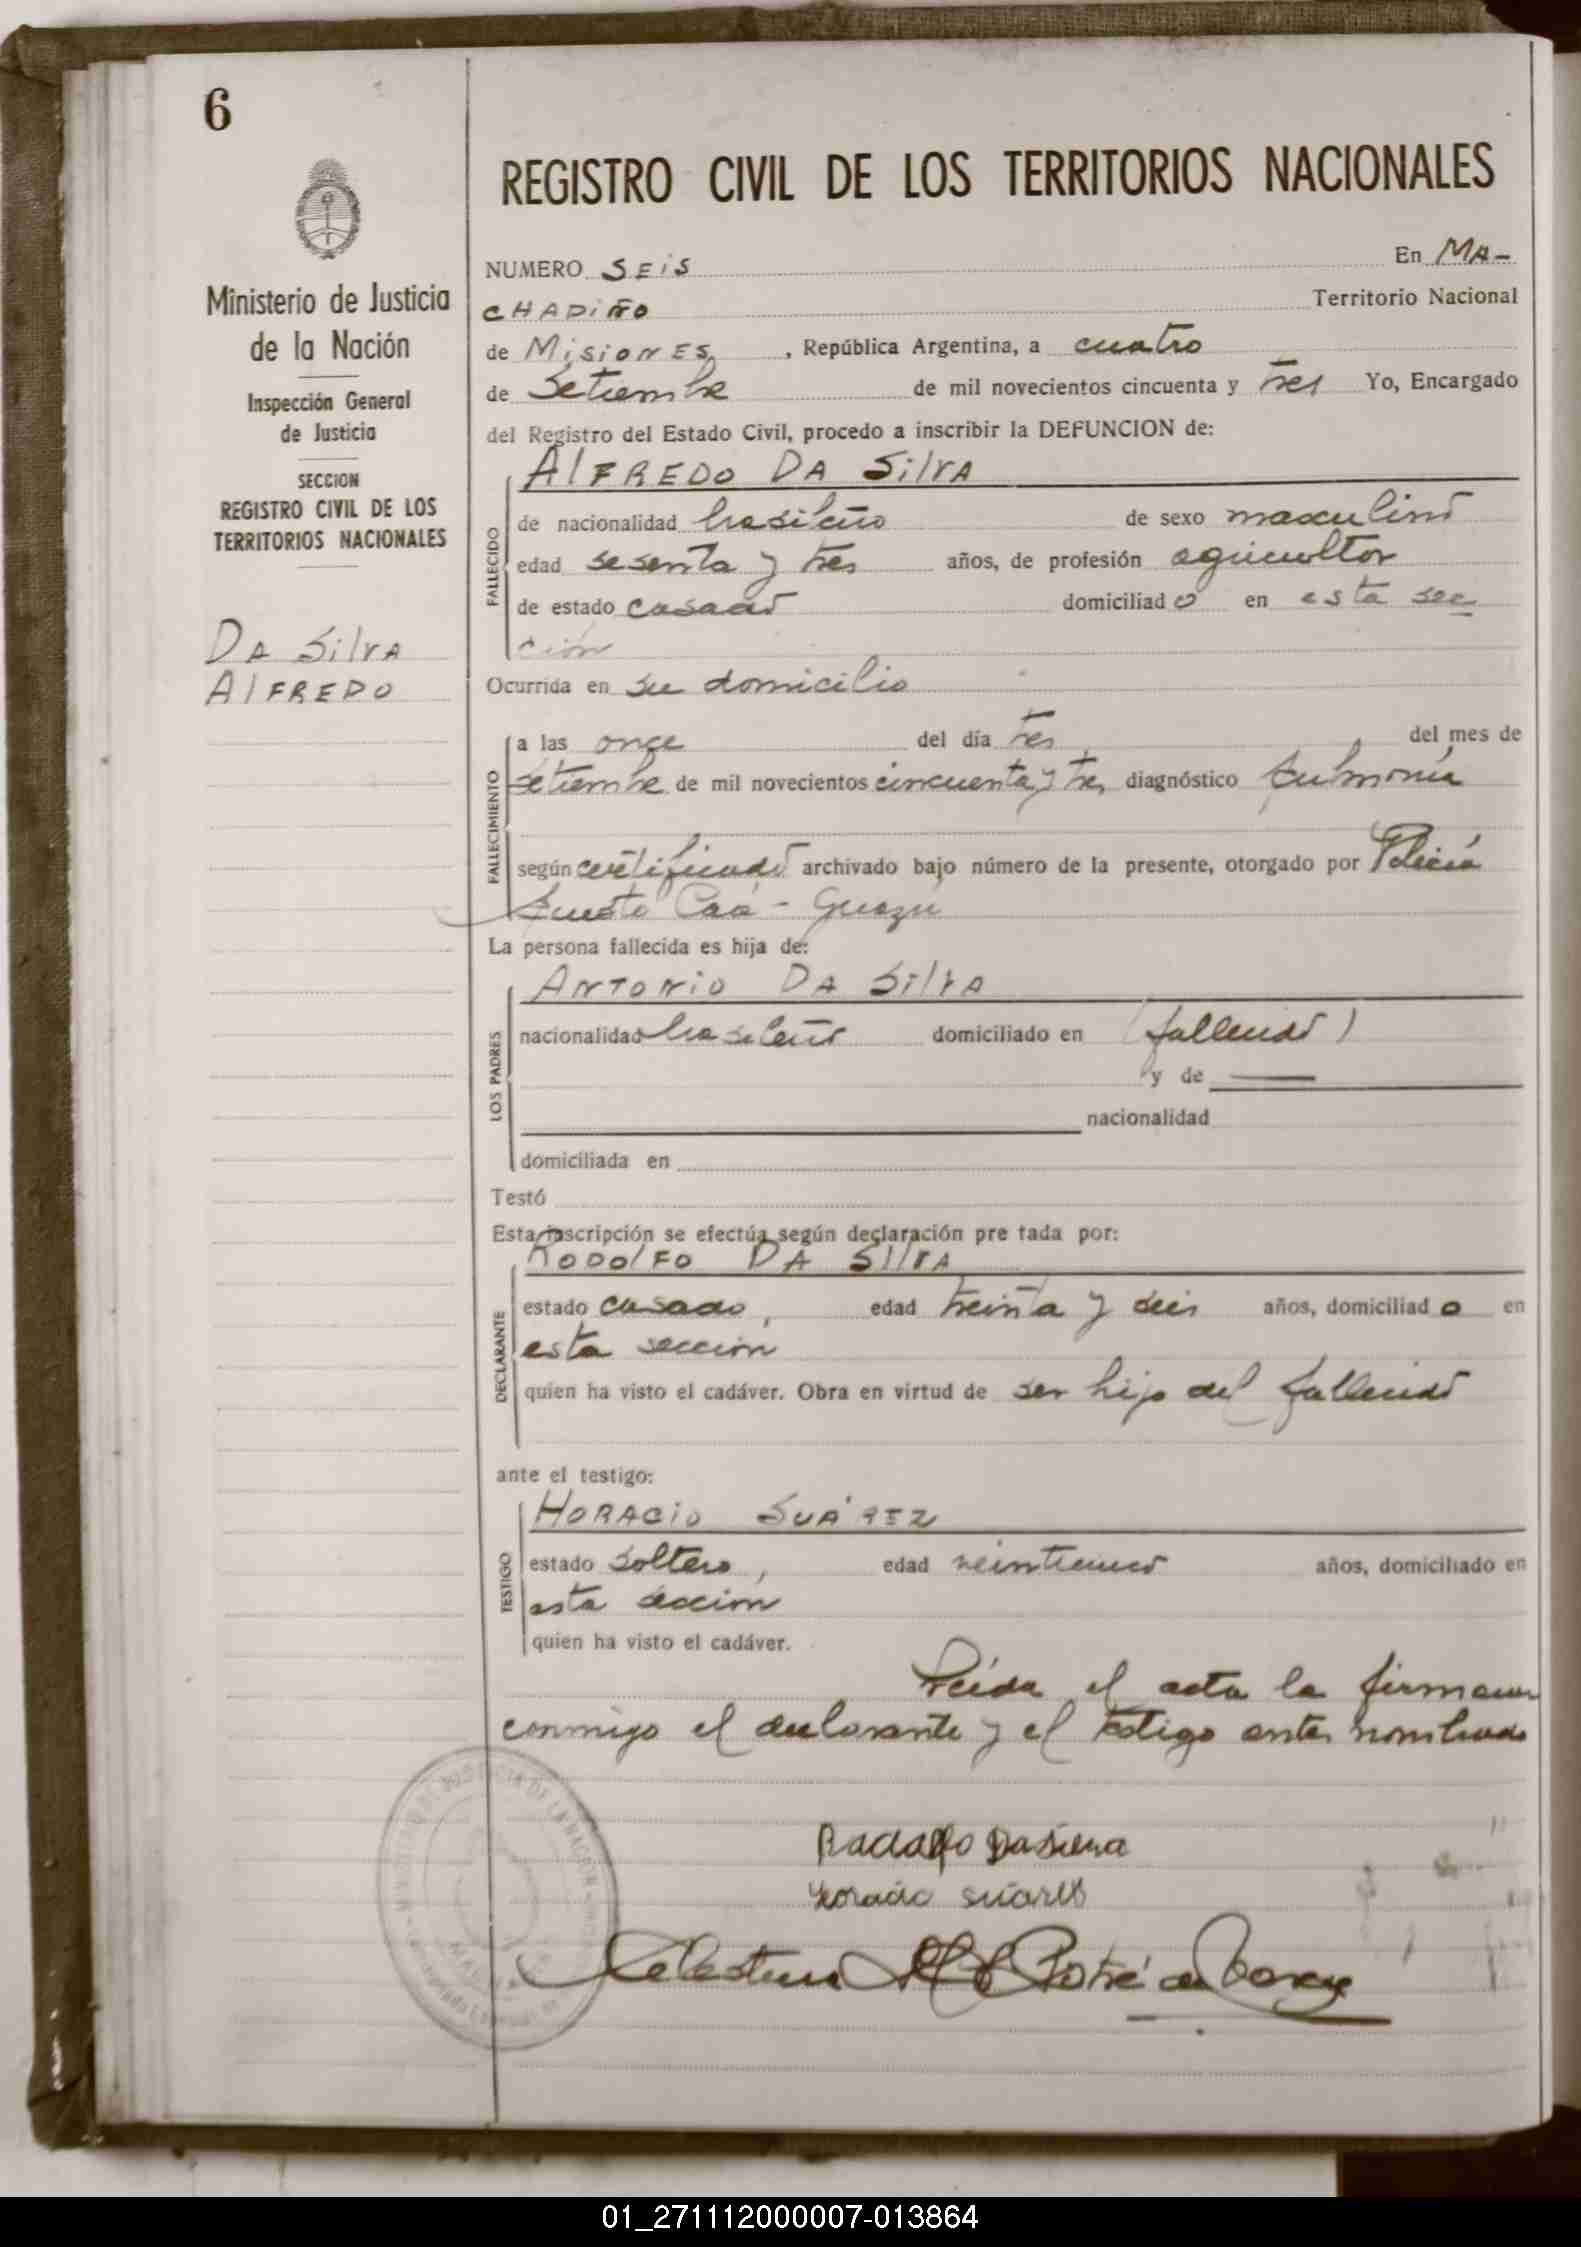 6
Ministerio de Justicia
de la Nación
Inspección General
de Justicia
SECCION
REGISTRO CIVIL DE LOS
TERRITORIOS NACIONALES
DA SilVA
AlFREDO
REGISTRO CIVIL DE LOS TERRITORIOS NACIONALES
NUMERO SEiS En MA-
CHADiÑO Territorio Nacional
de MiSiONES, República Argentina, a cuatro
de Setiembre de mil novecientos cincuenta y tres Yo, Encargado
del Registro del Estado Civil, procedo a inscribir la DEFUNCION de:
AlFREDO DA SilVA
FALLECIDO
de nacionalidad brasileño de sexo masculino
edad sesenta y tres años, de profesión agricultor
de estado casado domiciliado en esta sec
ción
Ocurrida en su domicilio
FALLECIMIENTO
a las once del día tres del mes de
setiembre de mil novecientos cincuenta y tres diagnóstico pulmonía
según certificado archivado bajo número de la presente, otorgado por Policía
Puesto Caá-Guazú
La persona fallecida es hija de:
ANTONiO DA SilVA
LOS PADRES
nacionalidad brasileño domiciliado en (fallecido)
y de ——
nacionalidad
domiciliada en
Testó
Esta inscripción se efectúa según declaración pre tada por:
RODOlFO DA SilVA
DECLARANTE
estado casado, edad treinta y seis años, domiciliado en
esta sección
quien ha visto el cadáver. Obra en virtud de ser hijo del fallecido
ante el testigo:
HORACiO SUÁREZ
TESTIGO
estado soltero, edad veintiuno años, domiciliado en
esta sección
quien ha visto el cadáver.
Leída el acta la firman
conmigo el declarante y el testigo antes nombrado
Radolfo Dasilva
Horacio Suárez
01_271112000007-013864